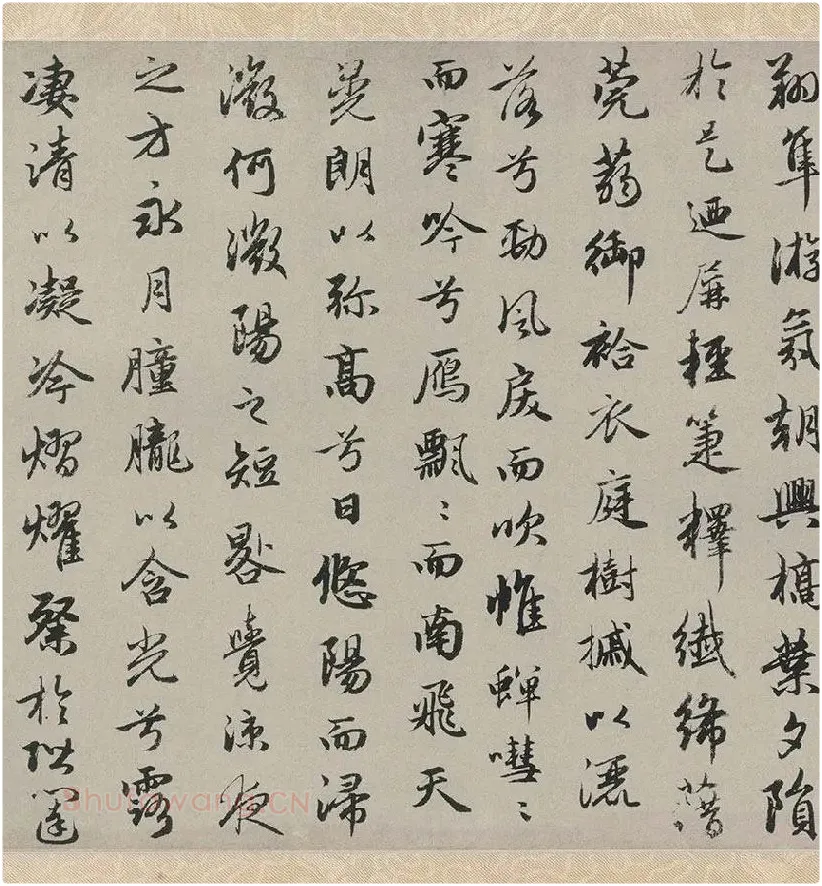 翔隼游氛朝興槁葉夕隕
於是迺屏輕箑釋纖絺藉
莞蒻御袷衣庭樹摵以灑
落兮勁風戾而吹帷蟬嘒〻
而寒吟兮鴈飄〻而南飛天
晃朗以弥高兮日悠陽而浸
微何微陽之短晷覺涼夜
之方永月朣朧以含光兮露
凄清以凝冷熠燿粲於階闥
Shufawang.CN